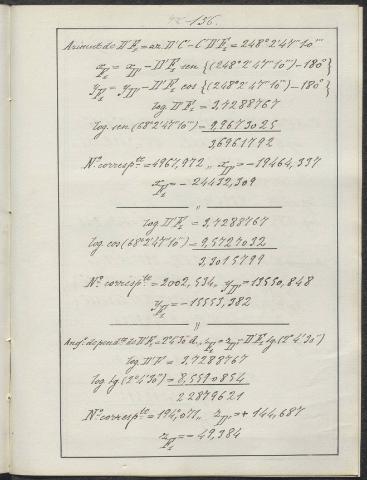 136.
Azimut de D'F'₂ = az. D'C' - C'D'F'₂ = 248°2'47"10'''
x_F'₂ = x_D' - D'F'₂ sen {(248°2'47"10''') - 180°}
y_F'₂ = y_D' - D'F'₂ cos {(248°2'47"10''') - 180°}
log. D'F'₂ = 3,7288767
log. sen (68°2'47"10''') = 9,9673025
3,6961792
N.º corresp.te = 4967,972 „ x_D' = -19464,337
x_F'₂ = - 24432,309
"
log. D'F'₂ = 3,7288767
log. cos (68°2'47"10''') = 9,5727032
3,3015799
N.º corresp.te = 2002,534, y_D' = 13550,848
y_F'₂ = - 15553,382
"
Ang.º de pend.te de D'F'₂ = 2°4'30" d., z_F'₂ = z_D' - D'F'₂ tg. (2°4'30")
log. D'F' = 3,7288767
log. tg. (2°4'30") = 8,5590854
2 2879621
N.º corresp.te = 194,071, z_D' = + 144,687
z_F'₂ = - 49,384